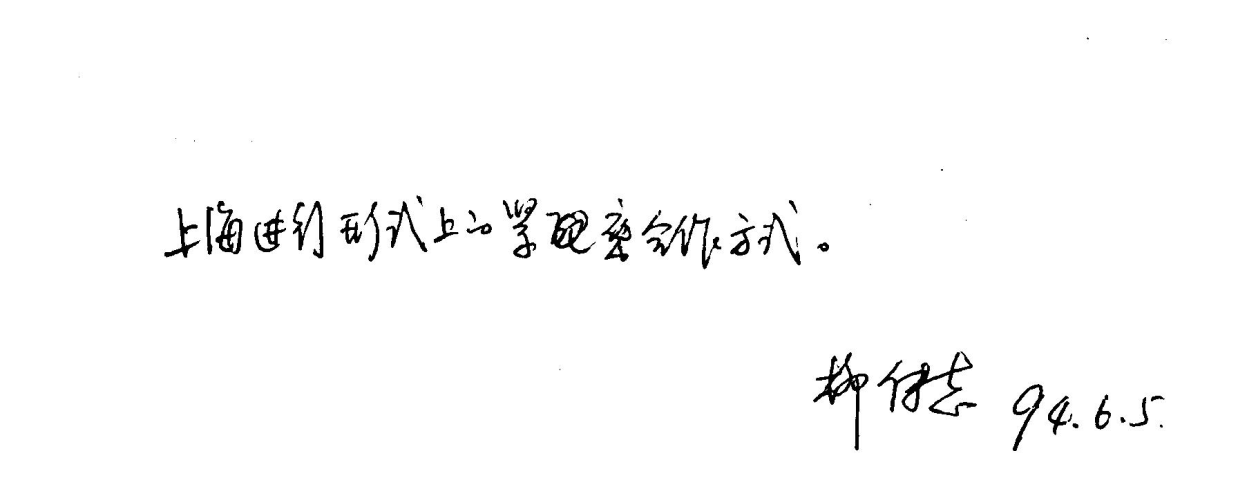 上海进行形式上的紧密合作方式。
柳传志 94.6.5.